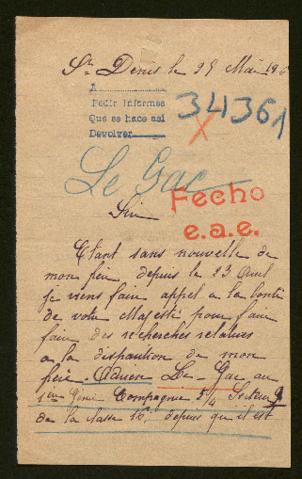 St Denis le 25 Mai 19
A
Pedir informes
Que se hace asi
Devolver
34361
Le Gac
Fecho
e.a.e.
Sire
Etant sans nouvelle de
mon frère depuis le 23 Avril
je viens faire appel a la bonté
de votre Majesté pour faire
faire des recherches relatives
a la disparition de mon
frère Le Gac au
1er Génie Compagnie 5/4 Secteur
de la classe 16, depuis qu'il est